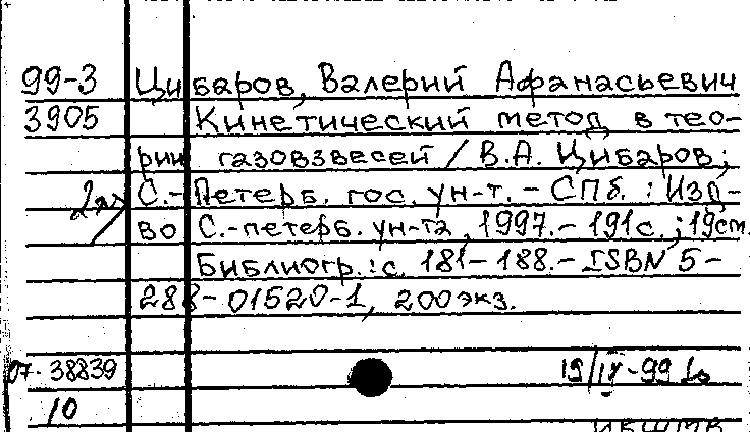 99-3 Цибаров, Валерий Афанасьевич
3905 Кинетический метод в тео-
рии газовзвесей / В.А. Цибаров;
2эк С.-Петерб. гос. ун-т. - СПб. : Изд-
во С.-петерб. ун-та, 1997. - 191с. ; 19см.
Библиогр.: с. 181-188. - ISBN 5-
288-01520-1, 200экз.
07-38839 19/IV-99
10